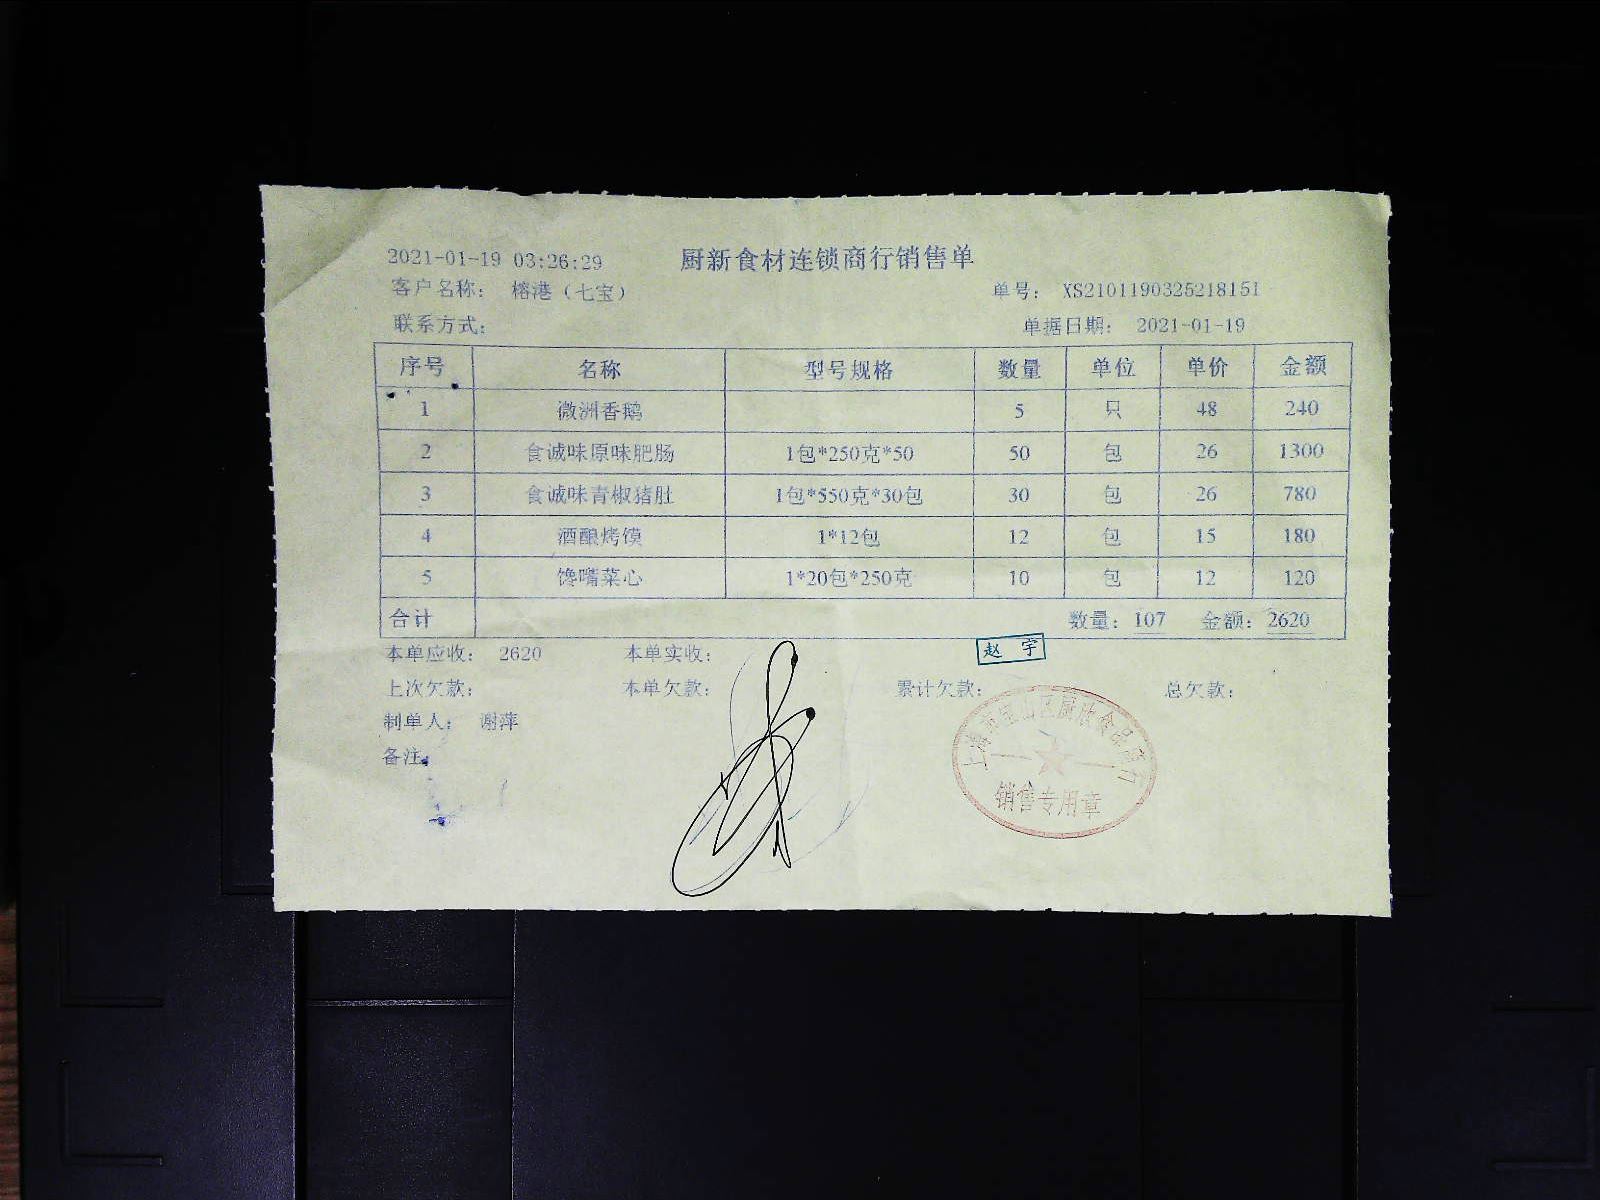 2021-01-19 03:26:29 厨新食材连锁商行销售单
客户名称： 榕港（七宝） 单号： XS21011903252181 51
联系方式： 单据日期： 2021-01-19
序号 名称 型号规格 数量 单位 单价 金额
1 微洲香鹅 5 只 48 240
2 食诚味原味肥肠 1包*250克*50 50 包 26 1300
3 食诚味青椒猪肚 1包*550克*30包 30 包 26 780
4 酒酿烤馍 1*12包 12 包 15 180
5 馋嘴菜心 1*20包*250克 10 包 12 120
合计 数量： 107 金额： 2620
本单应收： 2620 本单实收： 赵 宇
上次欠款： 本单欠款： 累计欠款： 总欠款：
制单人： 谢萍
备注
上海市宝山区厨欣食品商行
销售专用章